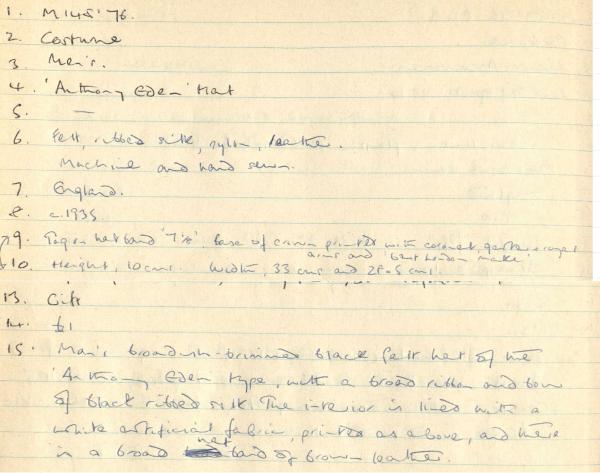 1. M145'76.
2. Costume
3 Men's.
4. 'Anthony Eden' Hat
5. —
6. Felt, ribbed silk, nylon, leather.
Machine and hand sewn.
7. England.
8. c.1935
9. Tag on hatband '7⅛'. Base of crown printed with coronet, garter & royal
arms and 'best London make'
10. Height, 10 cms. Width, 33 cms and 28.5 cms.
13. Gift
14. £1
15. Man's broadish-brimmed black felt hat of the
'Anthony Eden' type, with a broad ribbon and bow
of black ribbed silk. The interior is lined with a
white artificial fabric, printed as above, and there
is a broad hat band of brown leather.